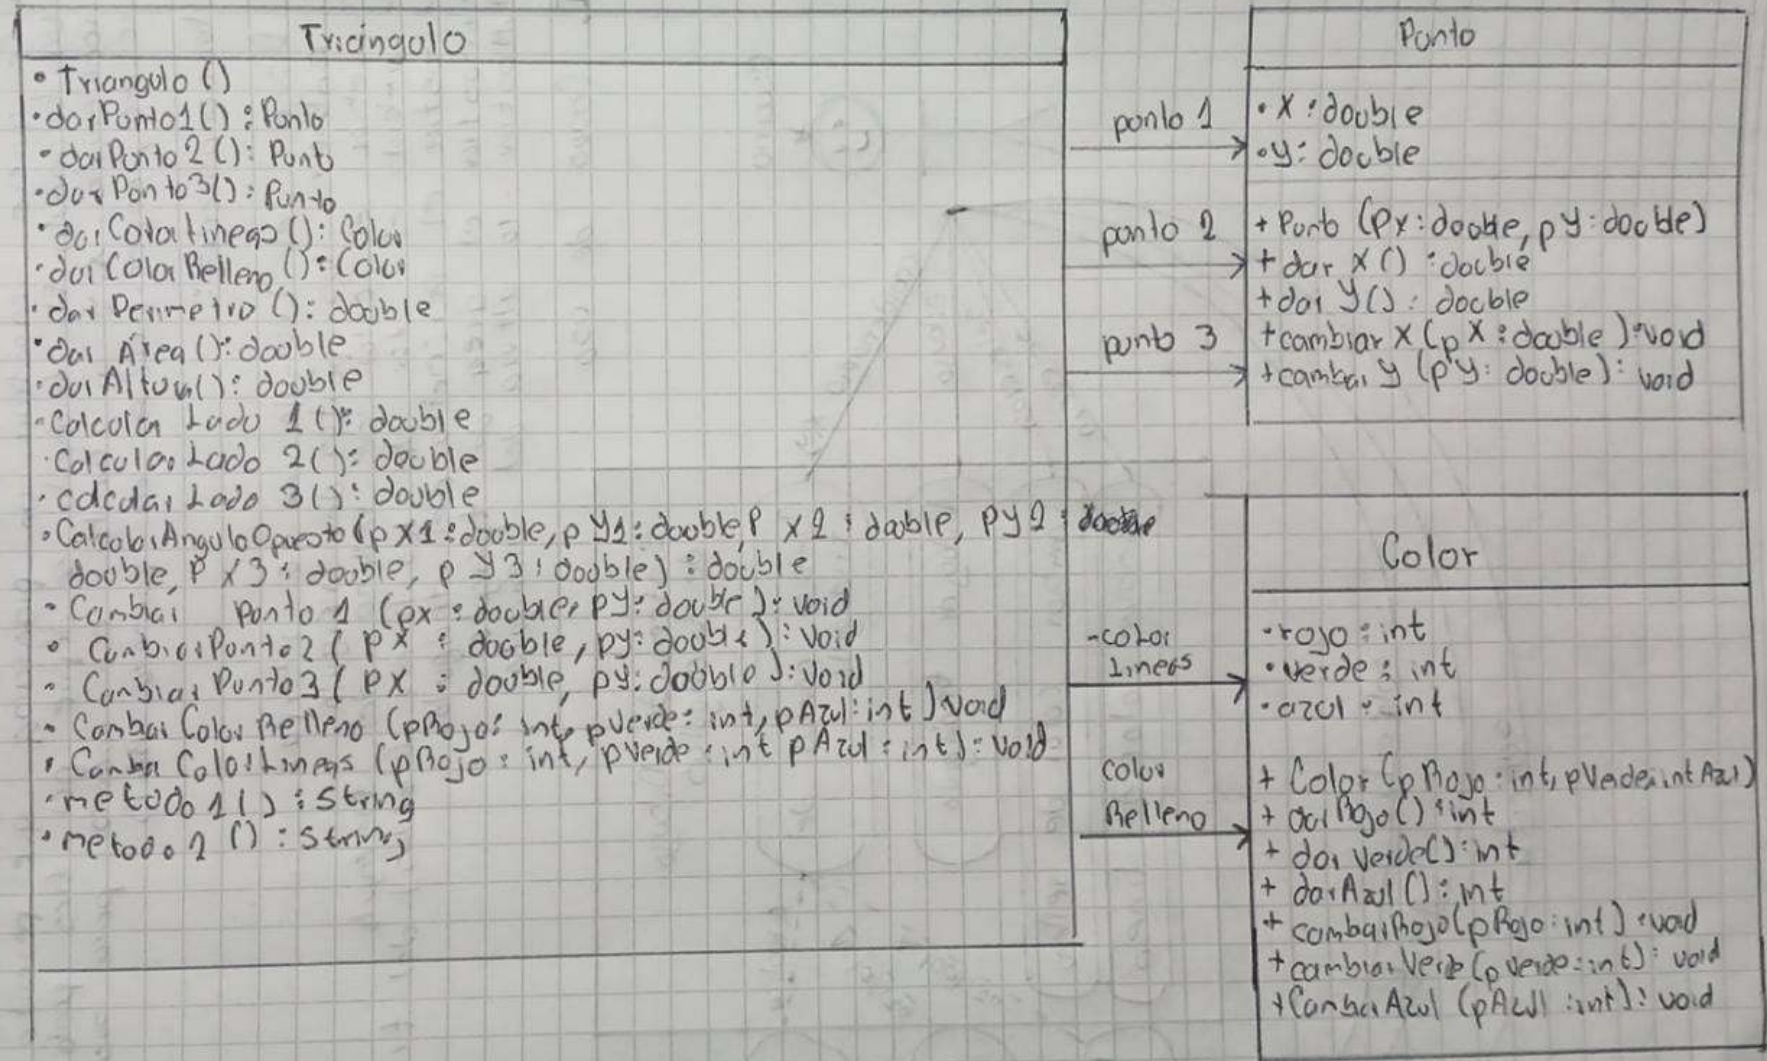 Triángulo
• Triangulo ()
• darPunto1() : Punto
• darPunto2(): Punto
• darPunto3(): Punto
• darColorLineas (): Color
• darColorRelleno (): Color
• dar Perimetro (): double
• dar Área (): double
• darAltura(): double
- Calcular Lado 1 (): double
· Calcular Lado 2(): double
· calcular Lado 3(): double
• CalcularAnguloOpuesto (px1: double, pY1: double, P x2 : double, Py2 :
double, P x3 : double, p y3 : double) : double
- Cambiar punto 1 (px : double, py: double): void
• CambiarPunto2 ( px : double, py: double): void
- Cambiar Punto3 ( px : double, py: double): void
- Cambiar Color Relleno (pRojo: int, pverde: int, pAzul: int) void
• Cambiar ColorLineas (pRojo : int, pverde : int pAzul : int) : void
· metodo 1() : String
• metodo 2 () : String
punto 1
punto 2
punto 3
-color
Lineas
Color
Relleno
Punto
• X : double
• y : double
+ Punto (px : double, py : double)
+ dar X() : double
+ dar Y() : double
+ cambiar X (pX : double ) : void
+ cambiar y (py: double) : void
Color
- rojo : int
• verde : int
· azul : int
+ Color (pRojo : int, pVerde, int Azul)
+ dar Rojo() : int
+ dar Verde() : int
+ darAzul () : int
+ cambiarRojo(pRojo : int) : void
+ cambiar Verde (pverde : int) : void
+ Cambiar Azul (pAzul : int) : void